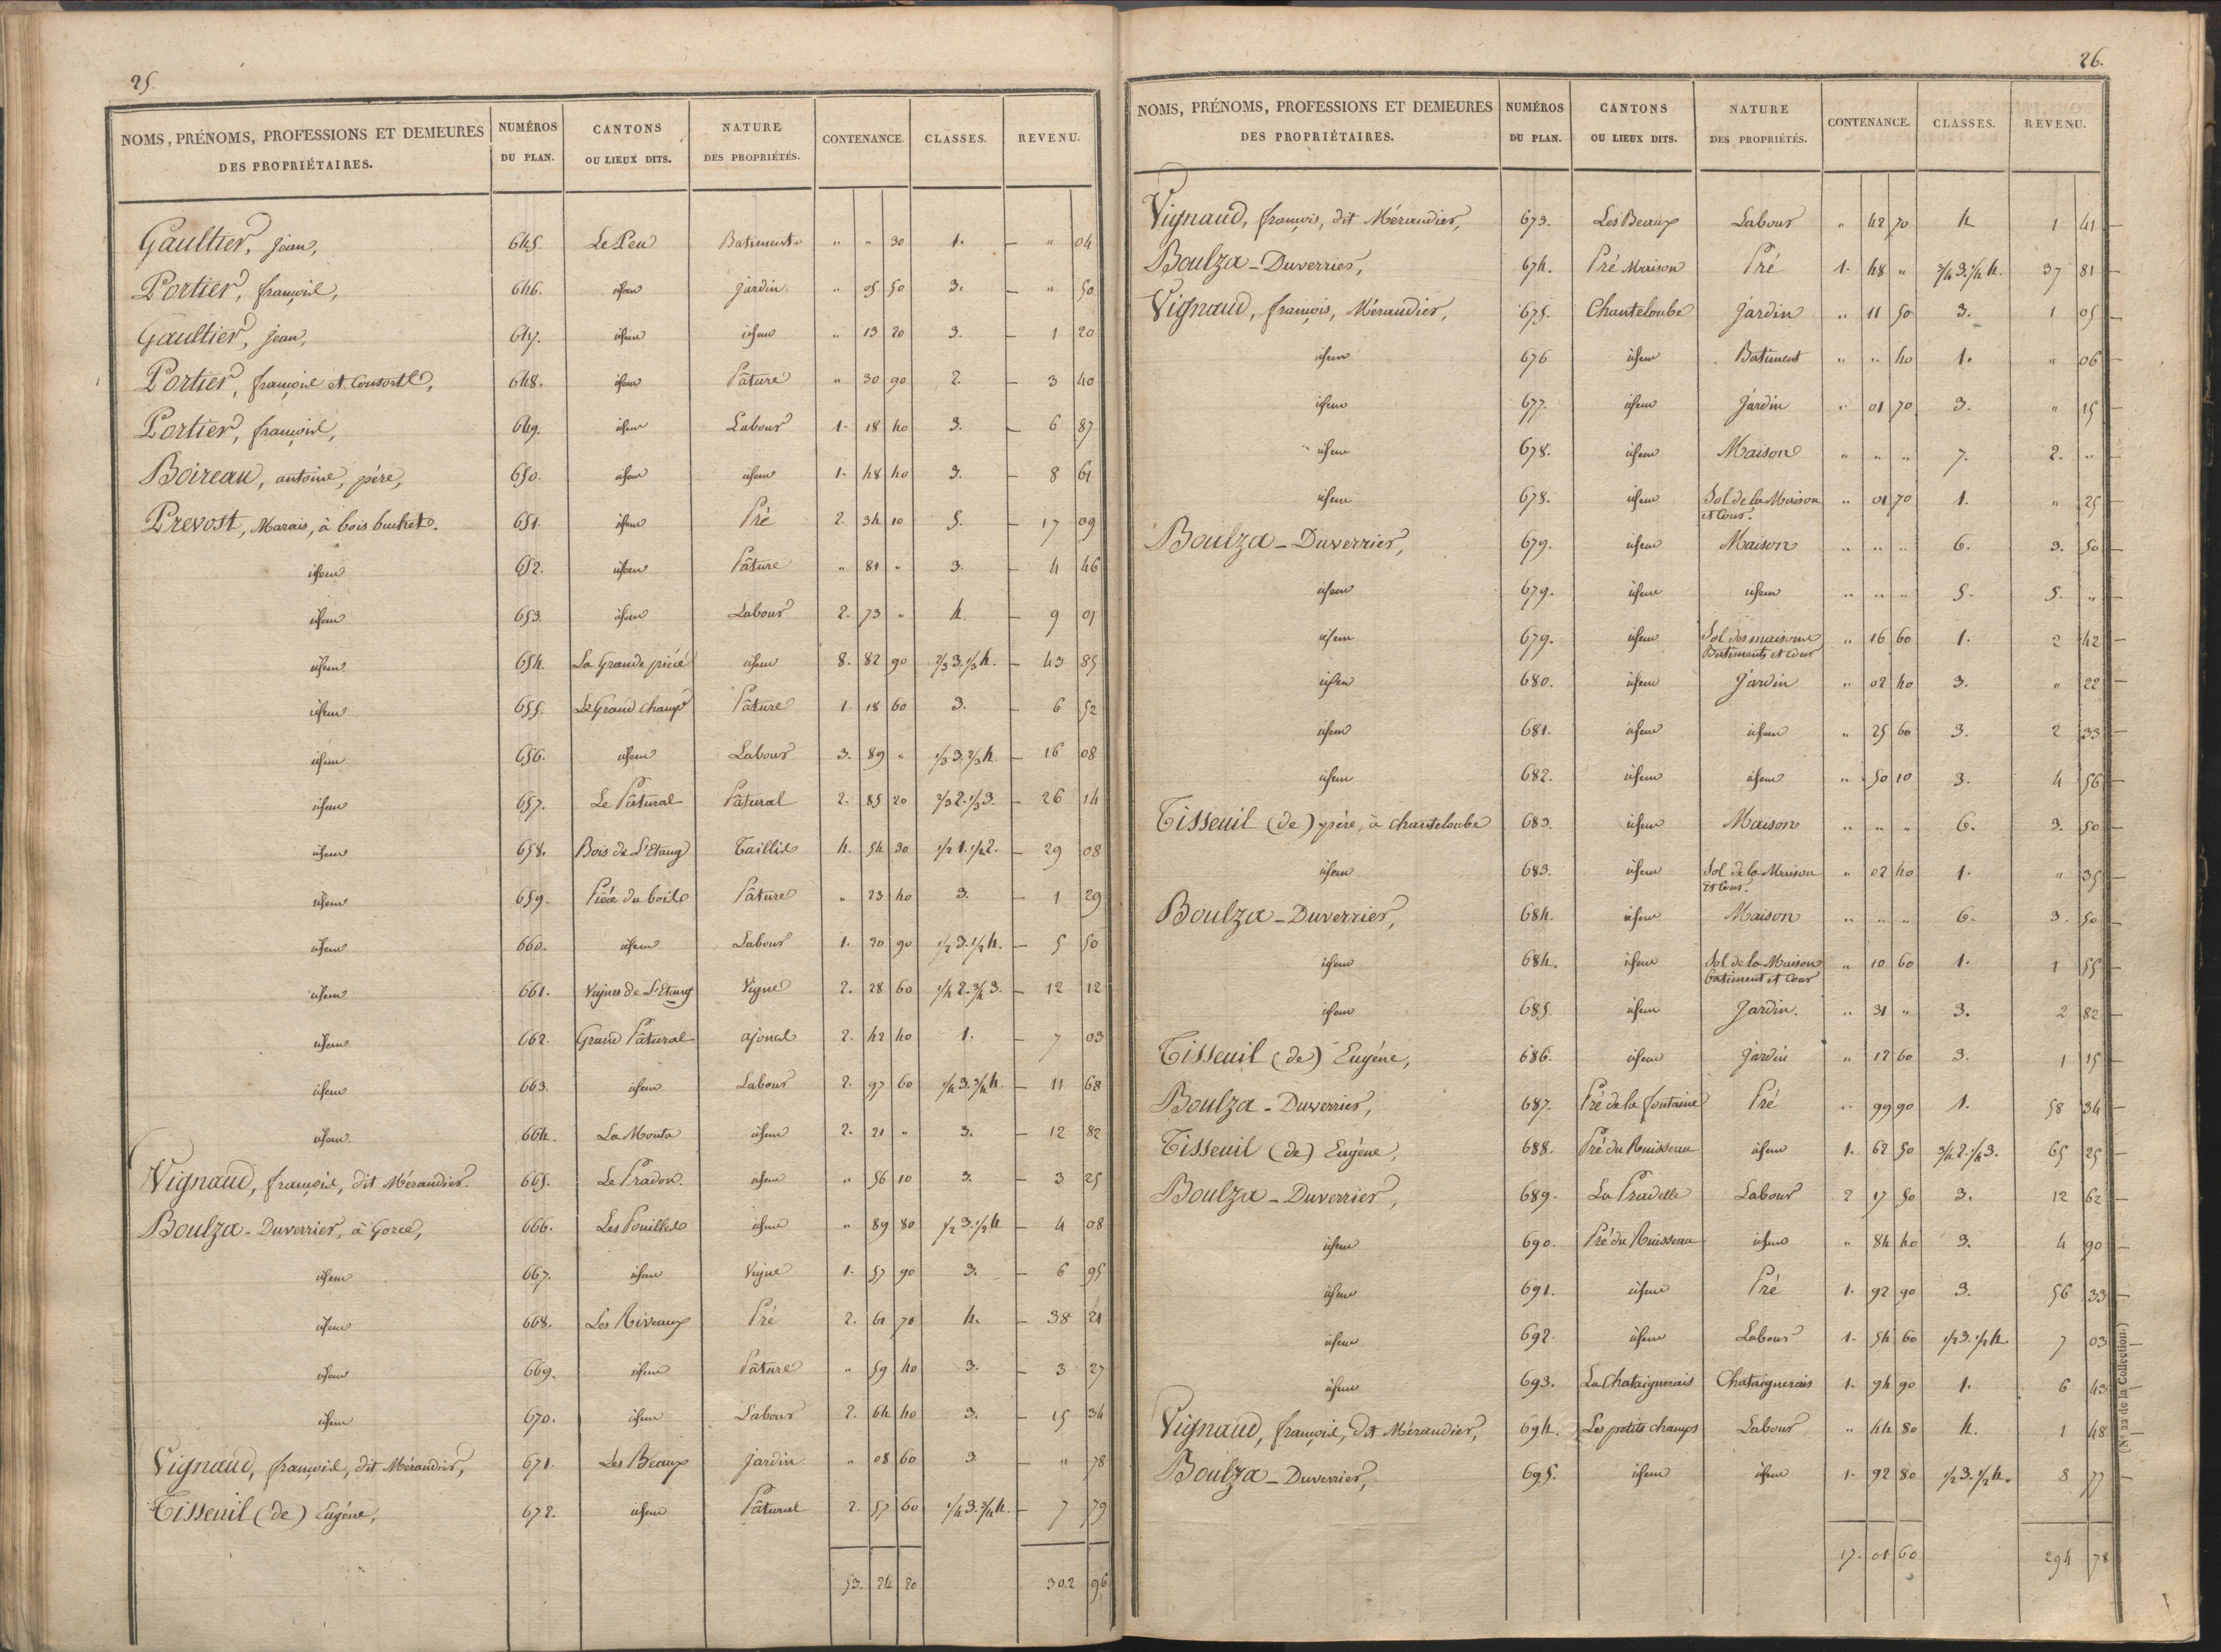 25.
NOMS, PRÉNOMS, PROFESSIONS ET DEMEURES DES PROPRIÉTAIRES. NUMÉROS DU PLAN. CANTONS OU LIEUX DITS. NATURE DES PROPRIÉTÉS. CONTENANCE. CLASSES. REVENU.
Gaultier, jean, 645. Le Peu Batiments " " 30 1. — " 04
Portier, françois, 646. idem jardin " 05 50 3. — " 50
Gaultier, jean, 647. idem idem " 13 20 3. — 1 20
Portier, françois et Consorts, 648. idem Pâture " 30 90 2. — 3 40
Portier, françois, 649. idem Labour 1. 18 40 3. — 6 87
Boireau, antoine, père, 650. idem idem 1. 48 40 3. — 8 61
Prevost, Marais, à bois buchet. 651. idem Pré 2. 34 10 5. — 17 09
idem 652. idem Pâture " 81 " 3. — 4 46
idem 653. idem Labour 2. 73 " 4. — 9 01
idem 654. La Grande pièce idem 8. 82 90 2/3 3. 1/3 4. — 43 85
idem 655. Le Grand champ Pâture 1 18 60 3. — 6 52
idem 656. idem Labour 3. 89 " 1/3 3. 2/3 4. — 16 08
idem 657. Le Pâtural Pâtural 2. 85 20 2/3 2. 1/3 3. — 26 14
idem 658. Bois de L'Etang Taillis 4. 54 30 1/2 1. 1/2 2. — 29 08
idem 659. Pièce du bois Pâture " 23 40 3. — 1 29
idem 660. idem Labour 1. 20 90 1/2 3. 1/2 4. — 5 50
idem 661. Vignes de L'Etang Vigne 2. 28 60 1/4 2. 3/4 3. — 12 12
idem 662. Grand Pâtural ajoncs 2. 42 40 1. — 7 03
idem 663. idem Labour 2. 97 60 1/4 3. 3/4 4. — 11 68
idem 664. La Mouta idem 2. 21 " 3. — 12 82
Vignaud, françois, dit Mérandier. 665. Le Pradou idem " 56 10 3. — 3 25
Boulza-Duverrier, à Gorce, 666. Les Pouilles idem " 89 80 1/2 3. 1/2 4 — 4 08
idem 667. idem Vigne 1. 57 90 3. — 6 95
idem 668. Les Riveaux Pré 2. 61 70 4. — 38 21
idem 669. idem Pâture " 59 40 3. — 3 27
idem 670. idem Labour 2. 64 40 3. — 15 34
Vignaud, françois, dit Mérandier, 671. Les Beaux jardin " 08 60 3 — " 78
Tisseuil (de) Eugène, 672. idem Pâtural 2. 57 60 1/4 3. 3/4 4. — 7 79
53. 24 20 302 96
26.
NOMS, PRÉNOMS, PROFESSIONS ET DEMEURES DES PROPRIÉTAIRES. NUMÉROS DU PLAN. CANTONS OU LIEUX DITS. NATURE DES PROPRIÉTÉS. CONTENANCE. CLASSES. REVENU.
Vignaud, françois, dit Mérandier, 673. Les Beaux Labour " 42 70 4 1 41 —
Boulza-Duverrier, 674. Pré Maison Pré 1. 48 " 3/4 3. 1/4 4. 37 81 —
Vignaud, françois, Mérandier, 675. Chanteloube Jardin " 11 50 3. 1 05 —
idem 676 idem Batiment " " 40 1. " 06 —
idem 677. idem Jardin " 01 70 3. " 15 —
idem 678. idem Maison " " " 7. 2. " —
idem 678. idem Sol de la Maison et Cour. " 01 70 1. " 25 —
Boulza-Duverrier, 679. idem Maison " " " 6. 3. 50 —
idem 679. idem idem " " " 5. 5. " —
idem 679. idem Sol des maisons Batiments et Cour " 16 60 1. 2 42 —
idem 680. idem Jardin " 02 40 3. " 22 —
idem 681. idem idem " 25 60 3. 2 33 —
idem 682. idem idem " 50 10 3. 4 56 —
Tisseuil (de) père, à chanteloube 683. idem Maison " " " 6. 3. 50 —
idem 683. idem Sol de la Maison et Cour. " 02 40 1. " 35 —
Boulza-Duverrier, 684. idem Maison " " " 6. 3. 50 —
idem 684. idem Sol de la Maison batiment et Cour " 10 60 1. 1 55 —
idem 685. idem Jardin. " 31 " 3. 2 82 —
Tisseuil (de) Eugène, 686. idem Jardin " 12 60 3. 1 15 —
Boulza-Duverrier, 687. Pré de la fontaine Pré " 99 90 1. 58 34 —
Tisseuil (de) Eugène, 688. Pré du Ruisseau idem 1. 62 50 3/4 2. 1/4 3. 65 25 —
Boulza-Duverrier, 689. La Pradelle Labour 2 17 50 3. 12 62 —
idem 690. Pré du Ruisseau idem " 84 40 3. 4 90 —
idem 691. idem Pré 1. 92 90 3. 56 33 —
idem 692. idem Labour 1. 54 60 1/2 3. 1/2 4. 7 03 —
idem 693. La Chataignerais Chataignerais 1. 94 90 1. 6 43 —
Vignaud, françois, dit Mérandier, 694. Les petits champs Labour " 44 80 4. 1 48 —
Boulza-Duverrier, 695. idem idem 1. 92 80 1/2 3. 1/2 4. 8 77 —
17. 01 60 294 78
(N° 22 de la Collection.)